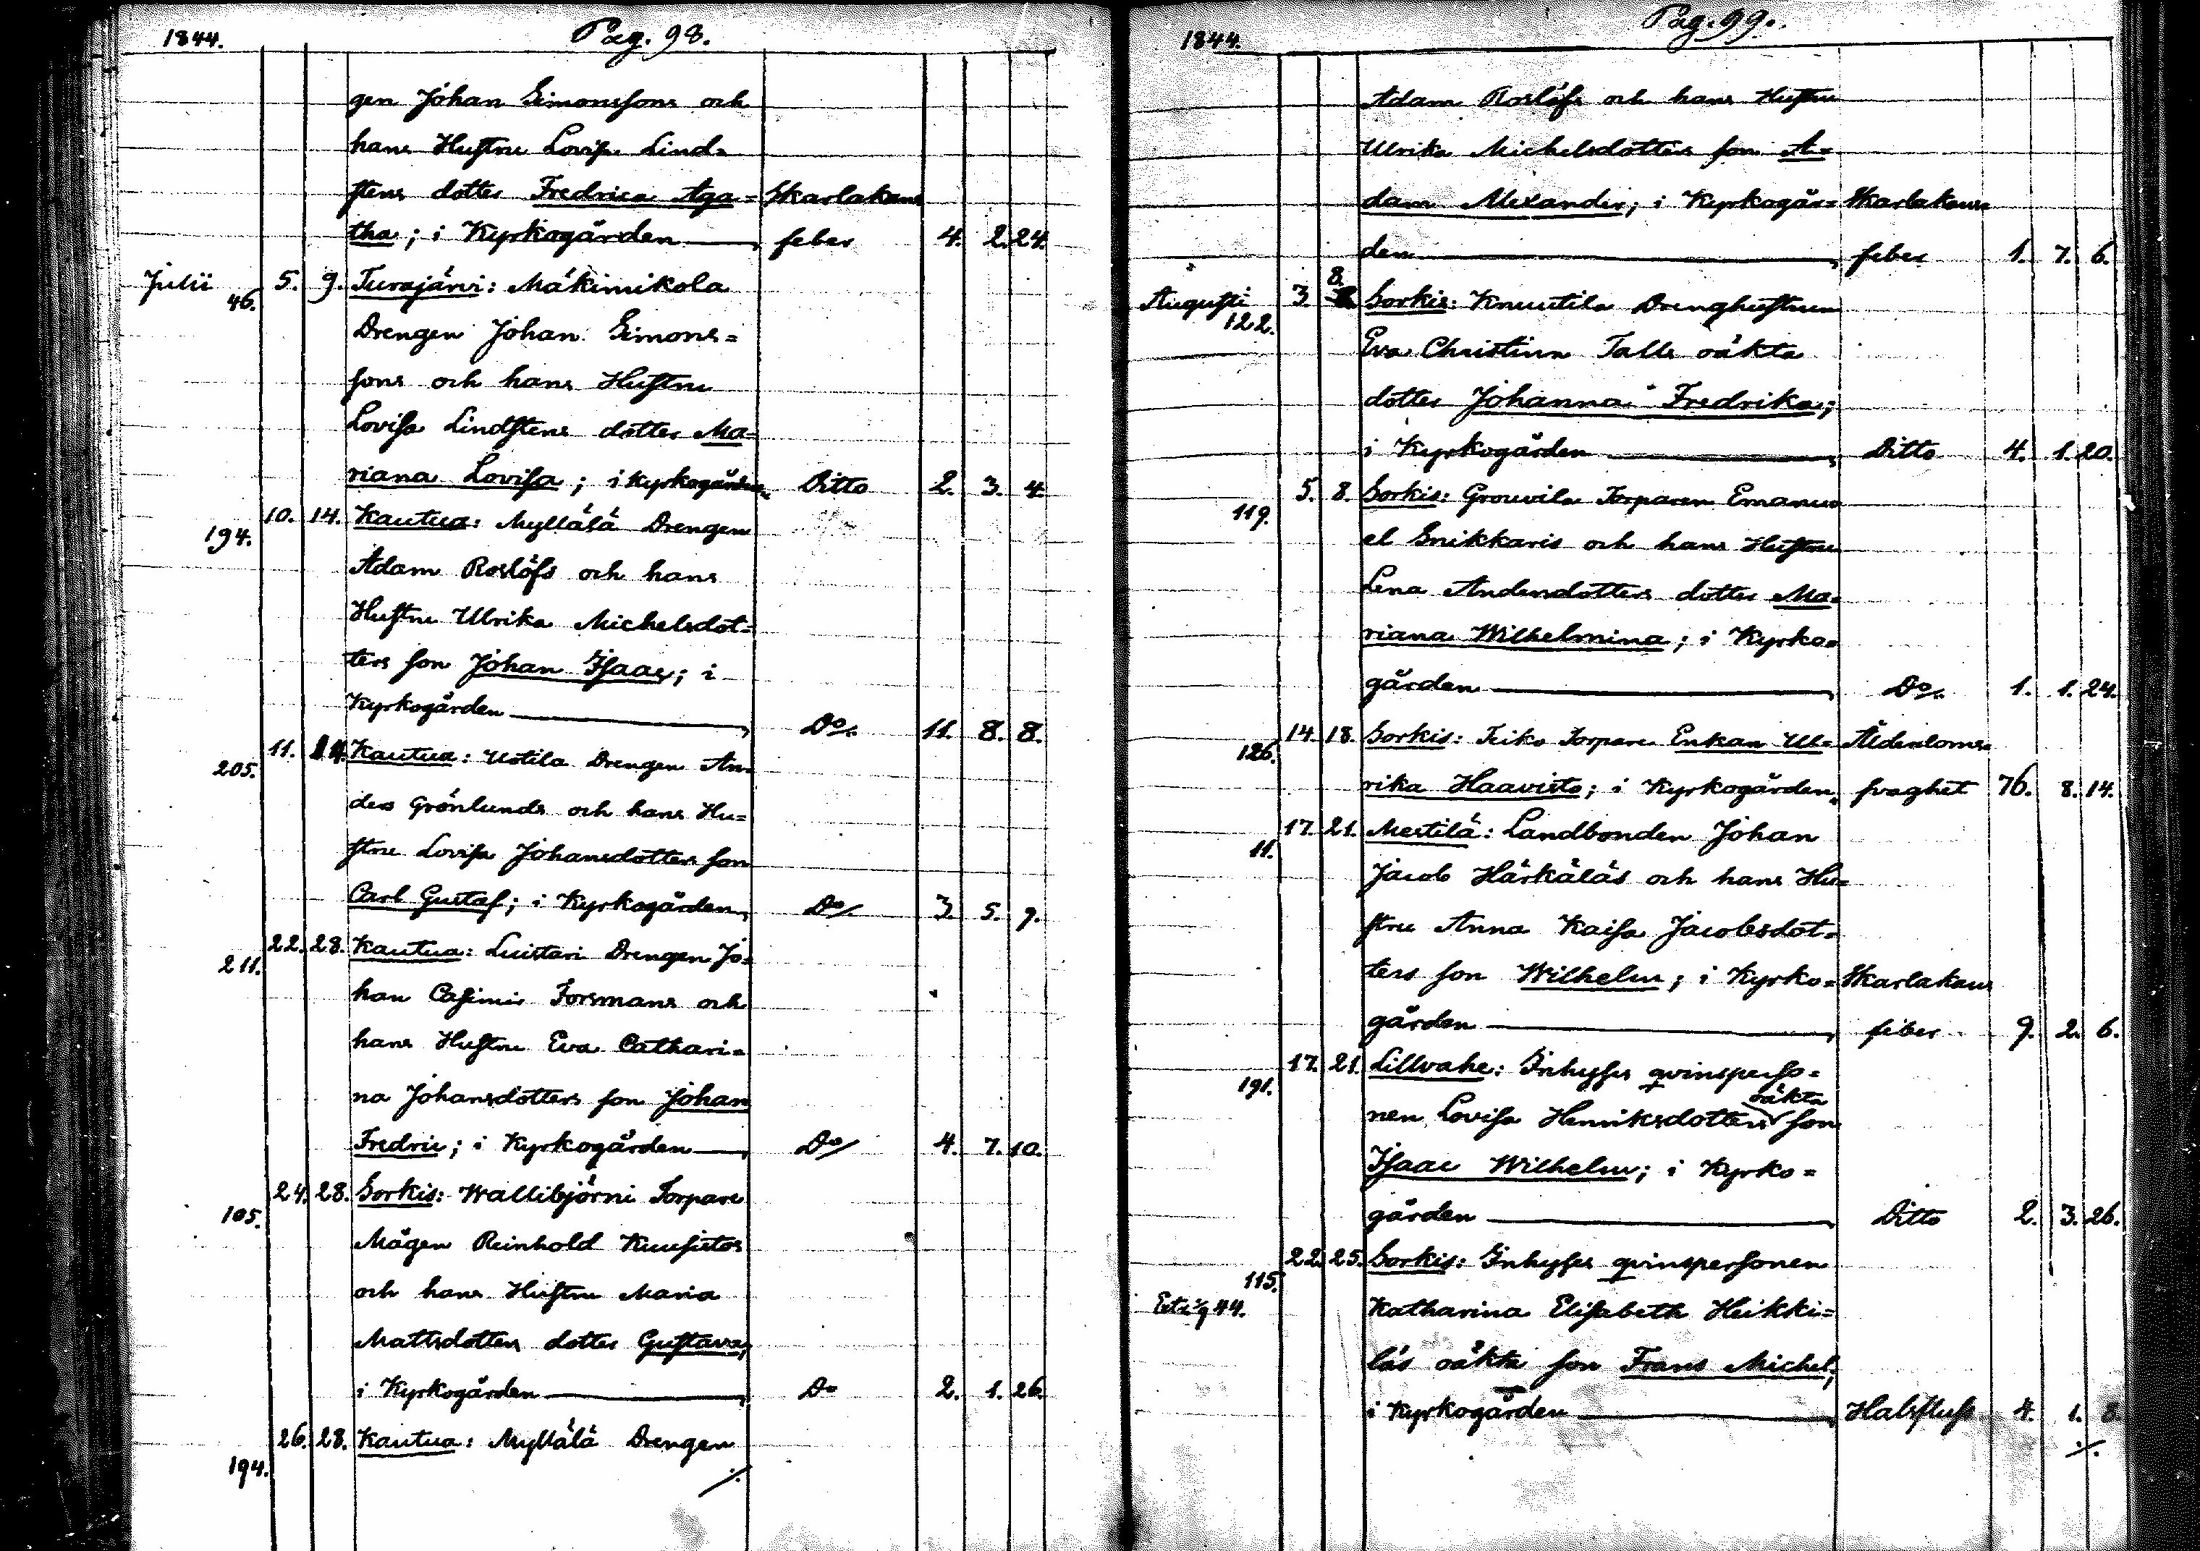 1844. Pag. 98.
gen Johan Simonssons och
hans Hustru Lovisa Lind-
stens dotter Fredrica Aga- Skarlakans
tha; i Kyrkogården feber 4. 2. 24.
Julii 46. 5. 9. Turajärvi: Mäkimikola
Drengen Johan Simons-
sons och hans Hustru
Lovisa Lindstens dotter Ma-
riana Lovisa; i Kyrkogården Ditto 2. 3. 4.
194. 10. 14. Kautua: Myllälä Drengen
Adam Roslöfs och hans
Hustru Ulrika Michelsdot-
ters son Johan Isaac; i
Kyrkogården Do/. 11. 8. 8.
205. 11. 14. Kautua: Uotila Drengen An-
ders Grönlunds och hans Hu-
stru Lovisa Johansdotters son
Carl Gustaf; i Kyrkogården, Do/ 3. 5. 9.
211. 22. 28. Kautua: Luistari Drengen Jo-
han Casimir Forsmans och
hans Hustru Eva Cathari-
na Johansdotters son Johan
Fredric; i Kyrkogården Do/ 4. 7. 10.
105. 24. 28. Sorkis: Wallibjörni Torpare
Mågen Reinhold Kuusistos
och hans Hustru Maria
Mattsdotters dotter Gustava;
i Kyrkogården Do 2. 1. 26.
194. 26. 28. Kautua: Myllälä Drengen
./.
1844. Pag. 99.
Adam Roslöfs och hans Hustru
Ulrika Michelsdotters son A-
dam Alexander; i Kyrkogår- Skarlakans
den feber 1. 7. 6.
Augusti 122. 3. 8. Sorkis: Knuutila Drenghustrun
Eva Christina Talls oäkta
dotter Johanna Fredrika;
i Kyrkogården Ditto 4. 1. 20.
119. 5. 8. Sorkis: Grouvila Torparen Emanu-
el Snikkaris och hans Hustru
Lena Andersdotters dotter Ma-
riana Wilhelmina; i Kyrko-
gården Do/. 1. 1. 24.
126. 14. 18. Sorkis: Teiko Torpare Enkan Ul- Ålderdoms-
rika Haavisto; i Kyrkogården, svaghet 76. 8. 14.
11. 17. 21. Mestilä: Landbonden Johan
Jacob Härkäläs och hans Hu-
stru Anna Kaisa Jacobsdot-
ters son Wilhelm; i Kyrko- Skarlakans
gården feber 9. 2. 6.
191. 17. 21. Lillvahe: Inhyses qvinsperso-
oäkta
nen Lovisa Henriksdotters son
Isaac Wilhelm; i Kyrko-
gården Ditto 2. 3. 26.
115. 22. 25. Sorkis: Inhyses qvinspersonen
Katharina Elisabeth Heikki-
läs oäkta son Frans Michel;
i Kyrkogården Halsfluss 4. 1. 8.
./.